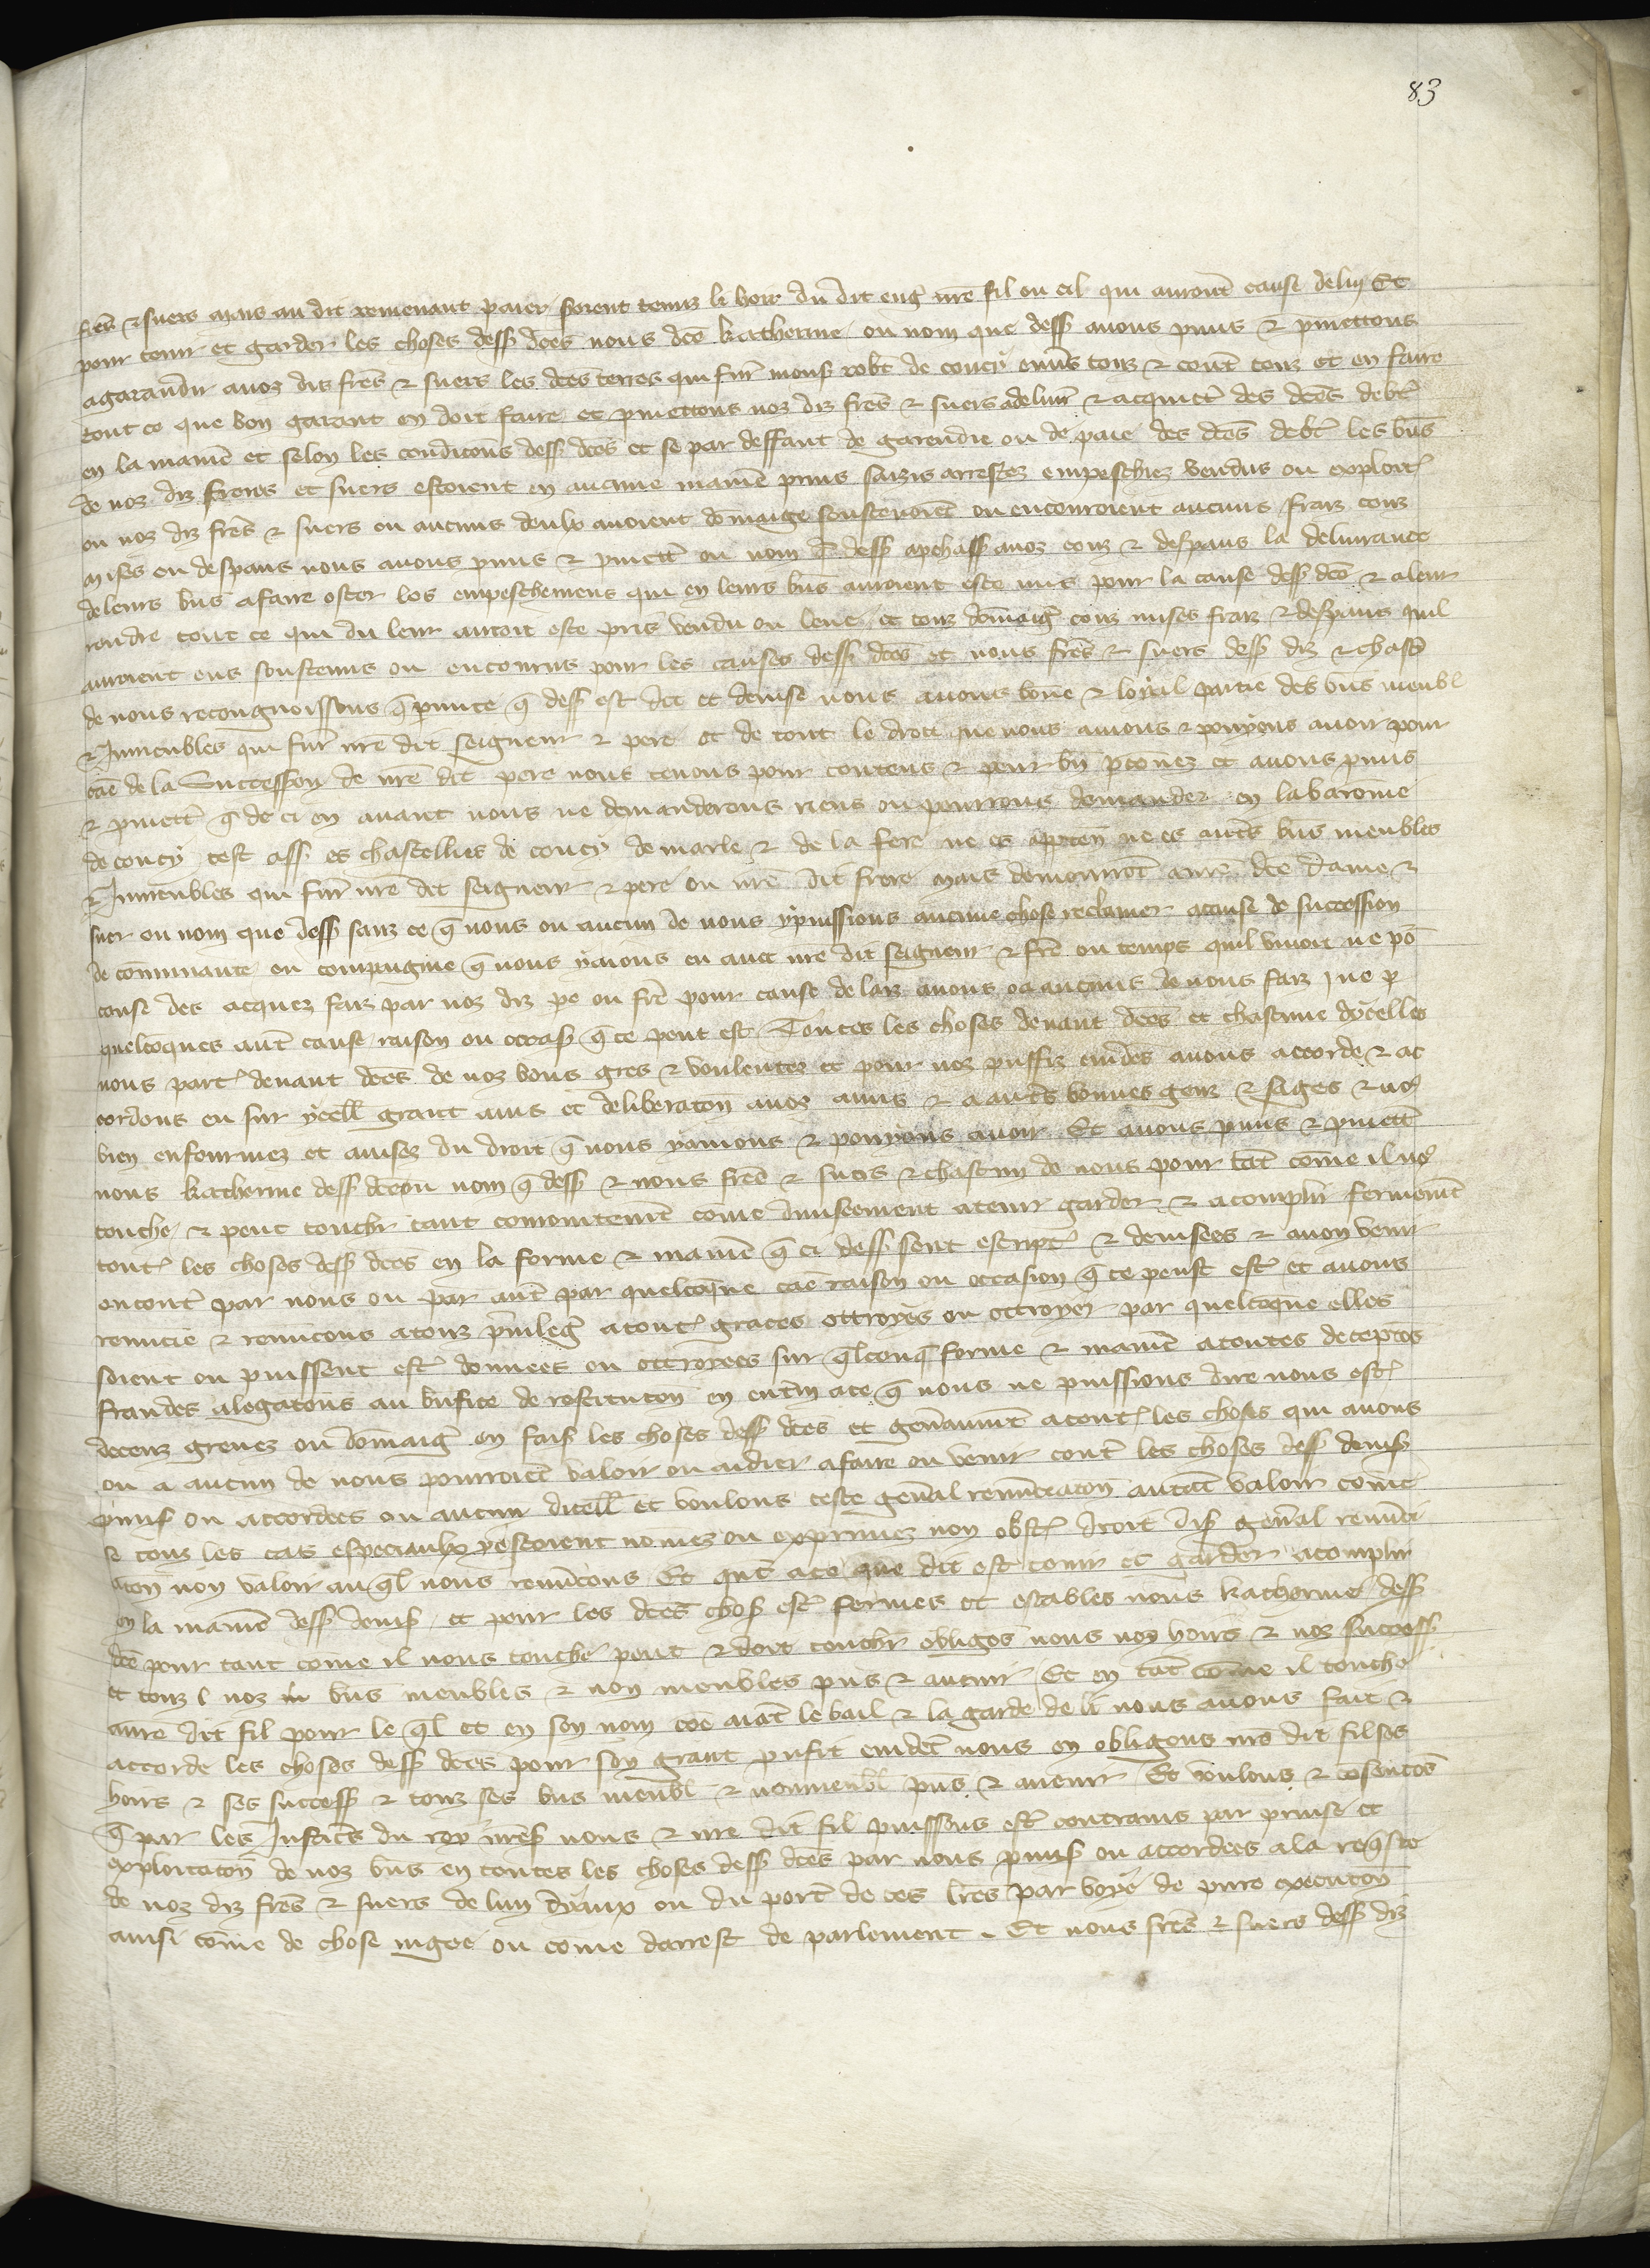 83
frēs & suers mais au dit remenant paier seront tenuz li hoir du dit eng̃ nrē fil ou cil qui auront cause de luy Et
pour tenir et garder les choses dess dc̄es nous dc̄e katherine ou nom que dess auons p̄mis & p̄mettons
agarandir anoz diz frēs & suers les dc̄es terres qui fur̄ mons robt̄ de coucy enūs touz & cont̄ touz et en faire
tout ce que bon garant en doit faire et p̄mettons noz diz frēs & suers adeliur̄ & acquict̄ des dc̄es debt̄
en la manīe et selon les condic̄ons dess dc̄es et se par deffaut de garendie ou de paie des dc̄es debt̄ les bn̄s
de noz diz freres et suers estoient en aucune manīe prins saizis arrestez empeschiez vendus ou exploit̄
ou noz diz frēs & suers ou aucuns deulx auoient dōmaige soustenoient ou encouroient aucuns fraiz couz
mises ou despans nous auons p̄mis & p̄mett̄ ou nom q̄ dess apchass anoz couz & despans la deliurance
de leurs bn̄s afaire oster les empeschemens qui en leurs bn̄s auroient este mis pour la cause dess dc̄e & aleur
rendre tout ce qui du leur auroit este pris vendu ou leue et touz dōmaig̃ couz mises fraiz & despans quil
auroient eus soustenus ou encourus pour les causes dess dc̄es et nous frēs & suers dess diz & chasc̄
de nous recongnoissons q̄ p̄mite q̄ dess est dit et deuise nous auons bōne & loyal partie des bn̄s meubl
& Inmeubles qui fur̄ nrē dit seigneur & pere et de tout le droit que nous auions & pouyons auoir pour
cāe de la Succession de nrē dit pere nous tenons pour contens & pour bn̄ pc̄onez et auons p̄mis
& p̄mett̄ q̄ de ci en auant nous ne demanderons riens ou pourrons demander en la baronie
de coucy cest ass es chastellies de coucy de marle & de la fere ne es apptēn ne es autēs bn̄s meubles
& Inmeubles qui fur̄ nrē dit seigneur & pere ou nrē dit frere mais demourront anrē dc̄e dame &
suer ou nom que dess sanz ce q̄ nous ou aucun de nous y puissions aucune chose reclamer acause de succession
de cōmunaute ou compaignie q̄ nous y aions eu auec nrē dit seigneur & frē ou temps quil viuoit ne po᷑
cause des acquez faiz par noz diz pe ou frē pour cause de laiz auons ou aucuns de nous faiz ne p
quelcōques aut̄ cause raison ou occas q̄ ce peut est̄ Toutes les choses deuant dc̄es et chascune dycelles
nous part̄ deuant dc̄es de noz bons gres & voulentez et pour noz puffiz euidēs auons accorde & ac
cordons eu sur ycell grant auis et deliberac̄on auoz amis & a autēs bonnes genz & sages & no᷑
bien enfourmez et auisez du droit q̄ nous y auions & pouyons auoir Et auons p̄mis & p̄mett̄
nous katherine dess dc̄e ou nom q̄ dess & nous frēs & suers & chascun de nous pour tāt cōme il no᷑
touche & peut touchr̄ tant conioitemēt come diuiseement atenir garder & acomplir fermemēt
tout̄ les choses dess dc̄es en la forme & manīe q̄ ci dess sont escript̄ & deuisees & anon venir
encont̄ par nous ou par aut̄ par quelcōque cāe raison ou occasion q̄ ce peust est̄ et auons
renūcie & renūcons atouz p̄uileg̃ atout̄ graces ottroyes ou ottroyer par quelcōque elles
soient ou puissent est̄ donnees ou ottroyees sur q̄lconq̄ forme & manīe atoutes deceptōs
fraudes alegac̄ons au bn̄fice de restituc̄on en enti᷑n ace q̄ nous ne puissions dire nous est̄
deceuz greuez ou dōmaig̃ en fais les choses dess dc̄es et gen̄aumēt atout̄ les choses qui anous
ou a aucun de nous pourroiēt valoir ou aidier afaire ou venir cont̄ les choses dess deuis
p̄mis ou accordees ou aucun dicell et voulons ceste gen̄al renūciac̄on autāt valoir come
se touz les cas especiaulx y estoient nōmez ou exprimez non obst̄ droit dis gen̄al renūci
ac̄on non valoir au q̄l nous renūcons Et quāt ace que dit est tenir et garder acomplir
en la manīe dess deuis et pour les dc̄es chos est̄ fermes et estables nous katherine dess
dc̄e pour tant come il nous touche peut & doit touchr̄ obligōs nous noz hoirs & noz success
et touz l noz bn̄s meubles & non meubles p̄ns & auenir Et en tāt cōme il touche
anrē dit fil pour le q̄l et en son nom cōe aiāt le bail & la garde de li nous auons fait &
accorde les choses dess dc̄es pour son grant p̄ufit euidēt nous en obligons nrē dit fil ses
hoirs & ses success & touz ses bn̄s meubl & nonmeubl p̄ns & auenir Et voulons & cōsentōs
q̄ par les Justicēs du roy nrēs nous & nrē dit fil puissons est̄ contrains par prinse et
exploitac̄on de noz bn̄s en toutes les choses dess dc̄es par nous p̄mis ou accordees ala req̄ste
de noz diz frēs & suers de lun dyaux ou du port̄ de ces lr̄es par voye de pure execuc̄on
ainsi cōme de chose iugee ou come darrest de parlement . Et nous frēs & suers dess diz